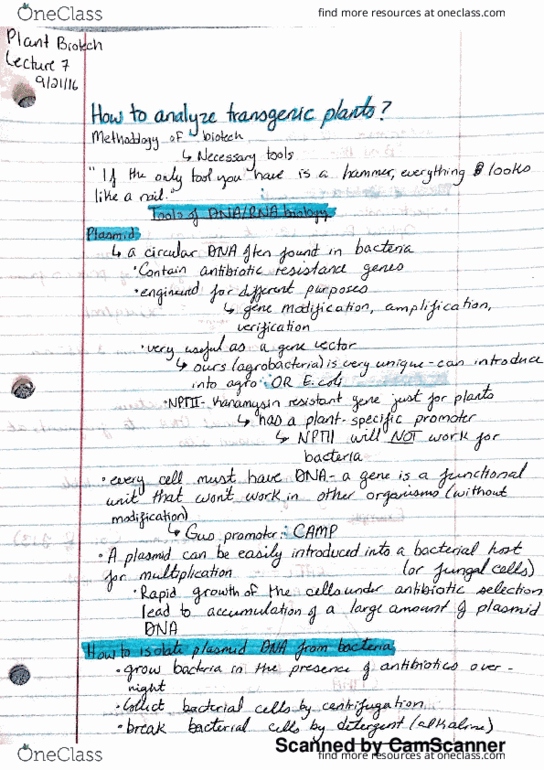 OneClass
find more resources at oneclass.com
Plant Biotech
Lecture 7
9/21/16
How to analyze transgenic plants?
Methodology of biotech
↳ Necessary tools
"If the only tool you have is a hammer, everything looks
like a nail."
Tools of DNA/RNA biology
Plasmid
↳ a circular DNA often found in bacteria
• Contain antibiotic resistance genes
• engineered for different purposes
↳ gene modification, amplification,
verification
• very useful as a gene vector
↳ ours (agrobacteria) is very unique - can introduce
into agro OR E. coli
• NPTII - Kanamysin resistant gene just for plants
↳ has a plant-specific promoter
↳ NPTII will NOT work for
bacteria
• every cell must have DNA - a gene is a functional
unit that won't work in other organisms (without
modification)
↳ Gus promoter: CAMP
• A plasmid can be easily introduced into a bacterial host
for multiplication (or fungal cells)
• Rapid growth of the cells under antibiotic selection
lead to accumulation of a large amount of plasmid
DNA
How to isolate plasmid DNA from bacteria
• grow bacteria in the presence of antibiotics over-
night
• Collect bacterial cells by centrifugation
• break bacterial cells by detergent (alkaline)
Scanned by CamScanner
OneClass
find more resources at oneclass.com